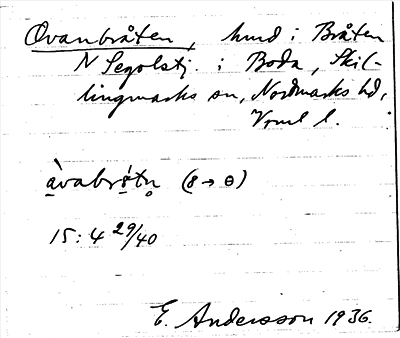 Ovanbråten, hmd i Bråten
N Segolstj. i Boda, Skil-
lingmarks sn, Nordmarks hd,
Vrml l.
àvabrȣ́tn̥ (ȣ → ɵ)
15:4 29/40
E. Andersson 1936.